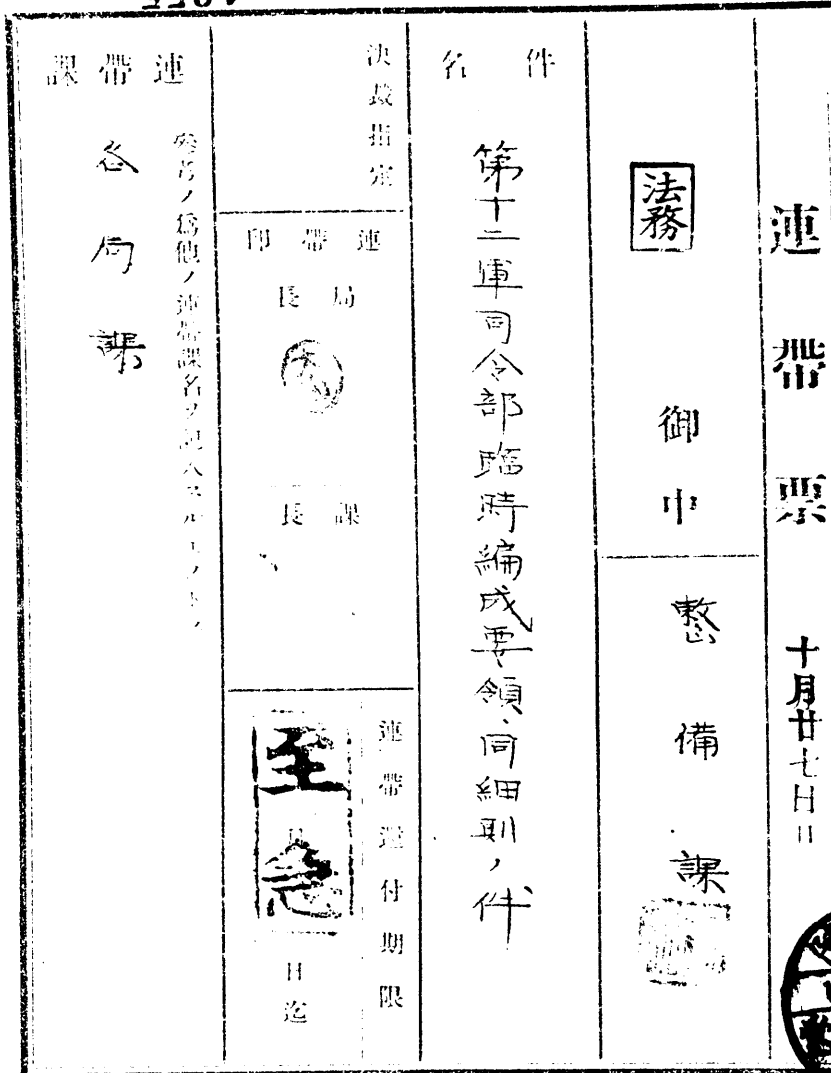 連帶票
十月廿七日
法務 御中
整備課
件名
第十二軍司令部臨時編成要領、同細則ノ件
決裁指定
連帶印
局長
課長
連帶還付期限
至急
月
日迄
連帶課
參考ノ爲他ノ連帶課名ヲ記入スルモノトス
各局課